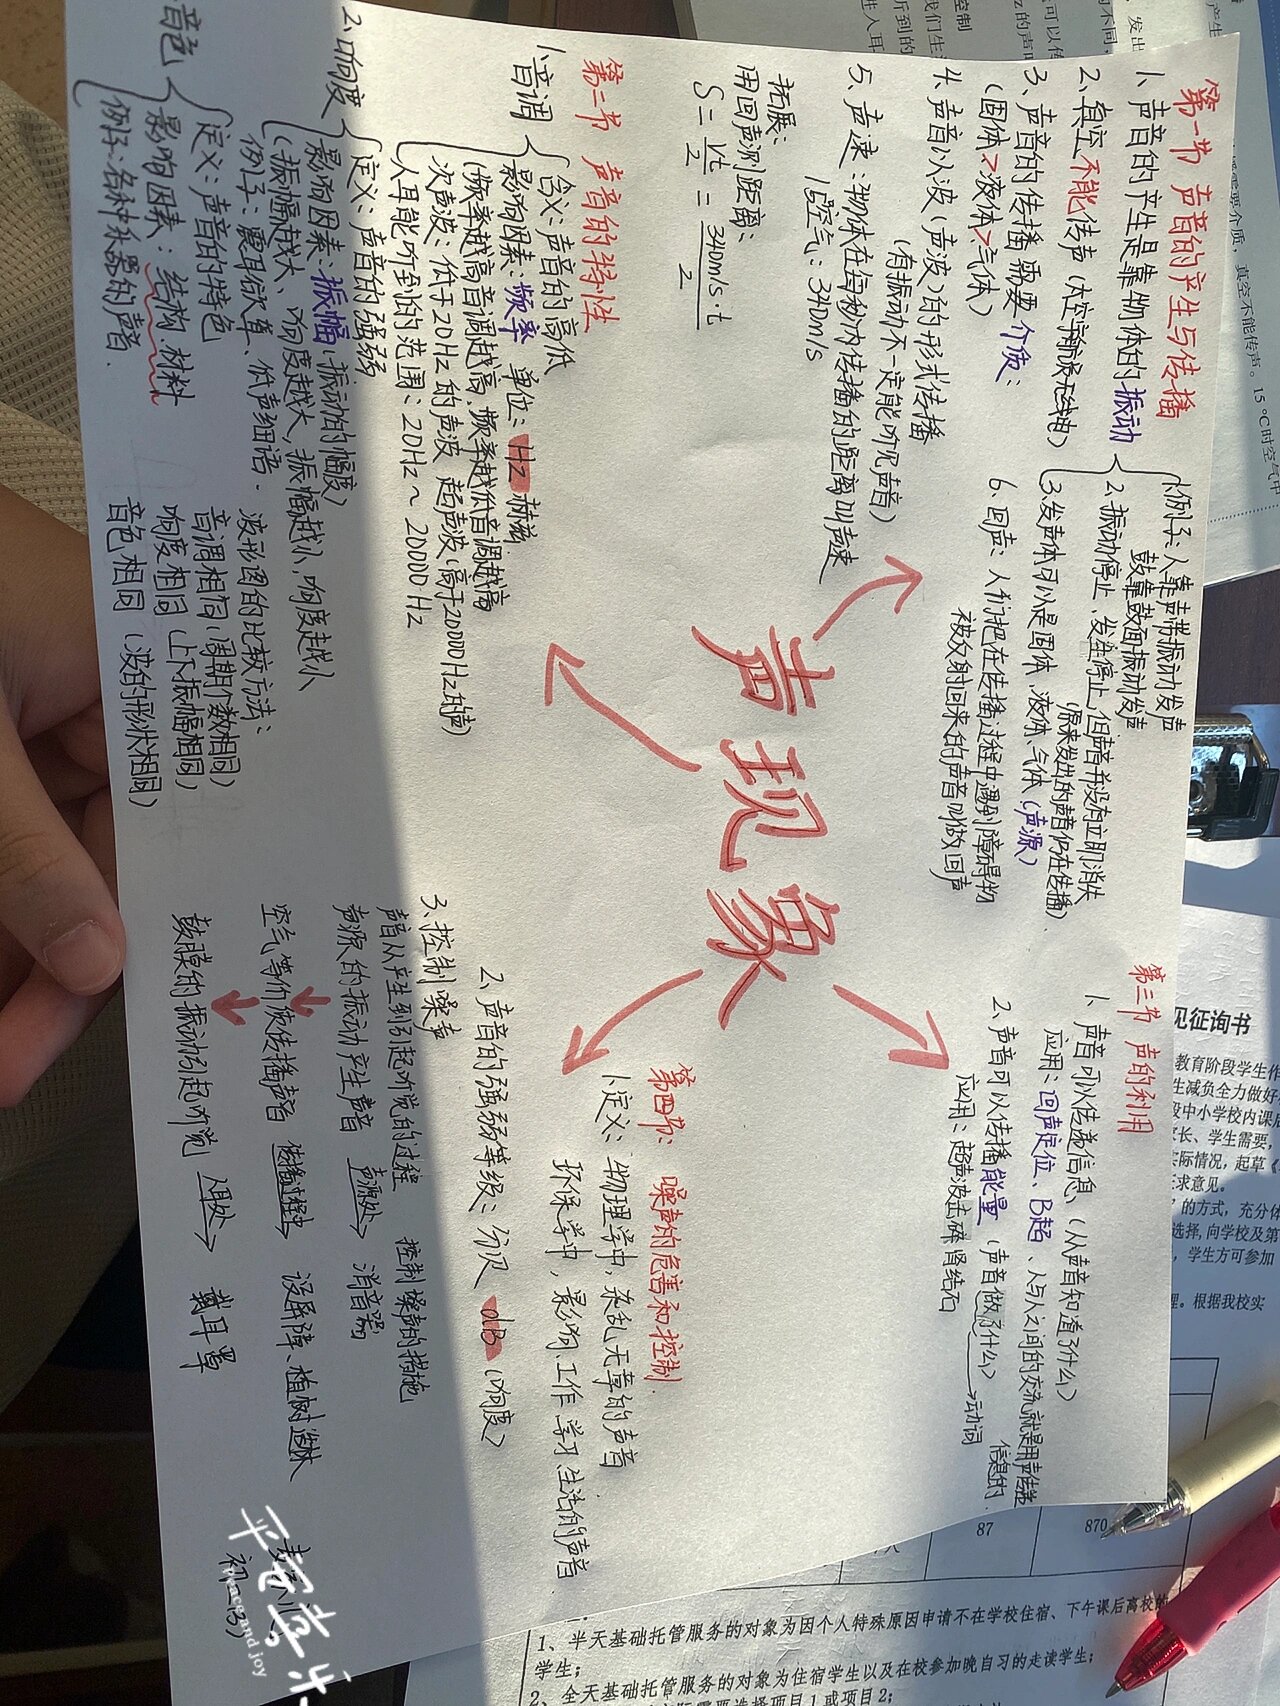 第一节 声音的产生与传播
1、声音的产生是靠物体的振动
1、例子：人靠声带振动发声
鼓靠鼓面振动发声
2、振动停止，发生停止，但声音并没有立即消失
(原来发出的声音仍在传播)
3、发声体可以是固体、液体、气体 (声源)
2、真空不能传声 (太空宇航员无线电)
3、声音的传播需要介质：
(固体>液体>气体)
4、声音以波 (声波) 的形式传播
(有振动不一定能听见声音)
5、声速：物体在每秒内传播的距离叫声速
15℃空气：340m/s
6、回声：人们把在传播过程中遇到障碍物
被反射回来的声音叫做回声
拓展：
用回声测距离：
S = vt/2 = 340m/s·t/2
声现象
第二节 声音的特性
1、音调
含义：声音的高低
影响因素：频率 单位：Hz 赫兹
(频率越高音调越高、频率越低音调越高
次声波：低于20Hz的声波 超声波 (高于20000Hz的声)
人耳能听到的范围：20Hz~20000Hz
2、响度
定义：声音的强弱
影响因素：振幅 (振动的幅度)
(振幅越大、响度越大，振幅越小，响度越小
例子：震耳欲聋、低声细语.
音色
定义：声音的特色
影响因素：结构、材料
例子：各种乐器的声音.
波形图的比较方法：
音调相同 (周期个数相同)
响度相同 (上下振幅相同)
音色相同 (波的形状相同)
第三节 声的利用
1、声音可以传递信息 (从声音知道了什么)
应用：回声定位、B超、人与人之间的交流就是用声传递
信息的
2、声音可以传播能量 (声音做了什么)
→动词
应用：超声波击碎肾结石
第四节：噪声的危害和控制.
1、定义：物理学中，杂乱无章的声音
环保学中，影响工作 学习 生活的声音
2、声音的强弱等级：分贝 dB (响度)
3、控制噪声
声音从产生到引起听觉的过程 控制噪声的措施
声源的振动产生声音 声源处→ 消音器
空气等介质传播声音 传播过程中→ 设屏障、植树造林
鼓膜的振动引起听觉 人耳处→ 戴耳罩
平安喜乐
Peace and joy
见征询书
87
870
1、半天基础托管服务的对象为因个人特殊原因申请不在学校住宿、下午课后离校的
学生；
2、全天基础托管服务的对象为住宿学生以及在校参加晚自习的走读学生；